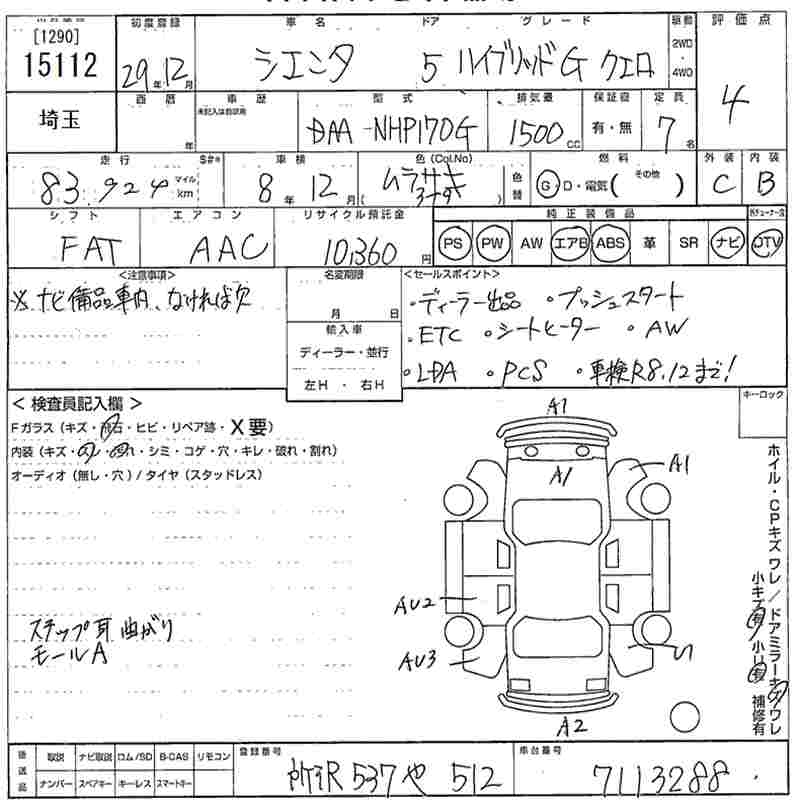 [1290]
15112
埼玉
初度登録
29年12月
車名
シエンタ
ドア
5
グレード
ハイブリッドG クエロ
駆動
2WD
・
4WD
評価点
4
西暦
年
車歴
未記入は自家用
型式
DAA-NHP170G
排気量
1500cc
保証書
有・無
定員
7名
走行
83,924
マイル
km
S#*
車検
8年12月
色(Col.No)
ムラサキ
色替
燃料
G・D・電気( その他 )
外装
C
内装
B
シフト
FAT
エアコン
AAC
リサイクル預託金
10,360円
純正装備品
PS PW AW エアB ABS 革 SR ナビ TV
<注意事項>
※ナビ備品車内、なければ欠
名変期限
月 日
輸入車
ディーラー・並行
左H ・ 右H
<セールスポイント>
・ディーラー出品 ・プッシュスタート
・ETC ・シートヒーター ・AW
・LDA ・PCS ・車検R8.12まで!
< 検査員記入欄 >
Fガラス(キズ・飛石・ヒビ・リペア跡・X要)
内装(キズ・スレ・汚れ・シミ・コゲ・穴・キレ・破れ・割れ)
オーディオ(無し・穴)/タイヤ(スタッドレス)
ステップ耳曲がり
モールA
キーロック
A1
A1
A1
AU2
AU3
A2
ホイル・CPキズワレ/ドアミラーキズワレ
小キズ有 小リ有 補修有
後送品
取説 ナビ取説 ロム/SD B-CAS リモコン
ナンバー スペアキー キーレス スマートキー
登録番号
所沢 537 や 512
車台番号
7113288